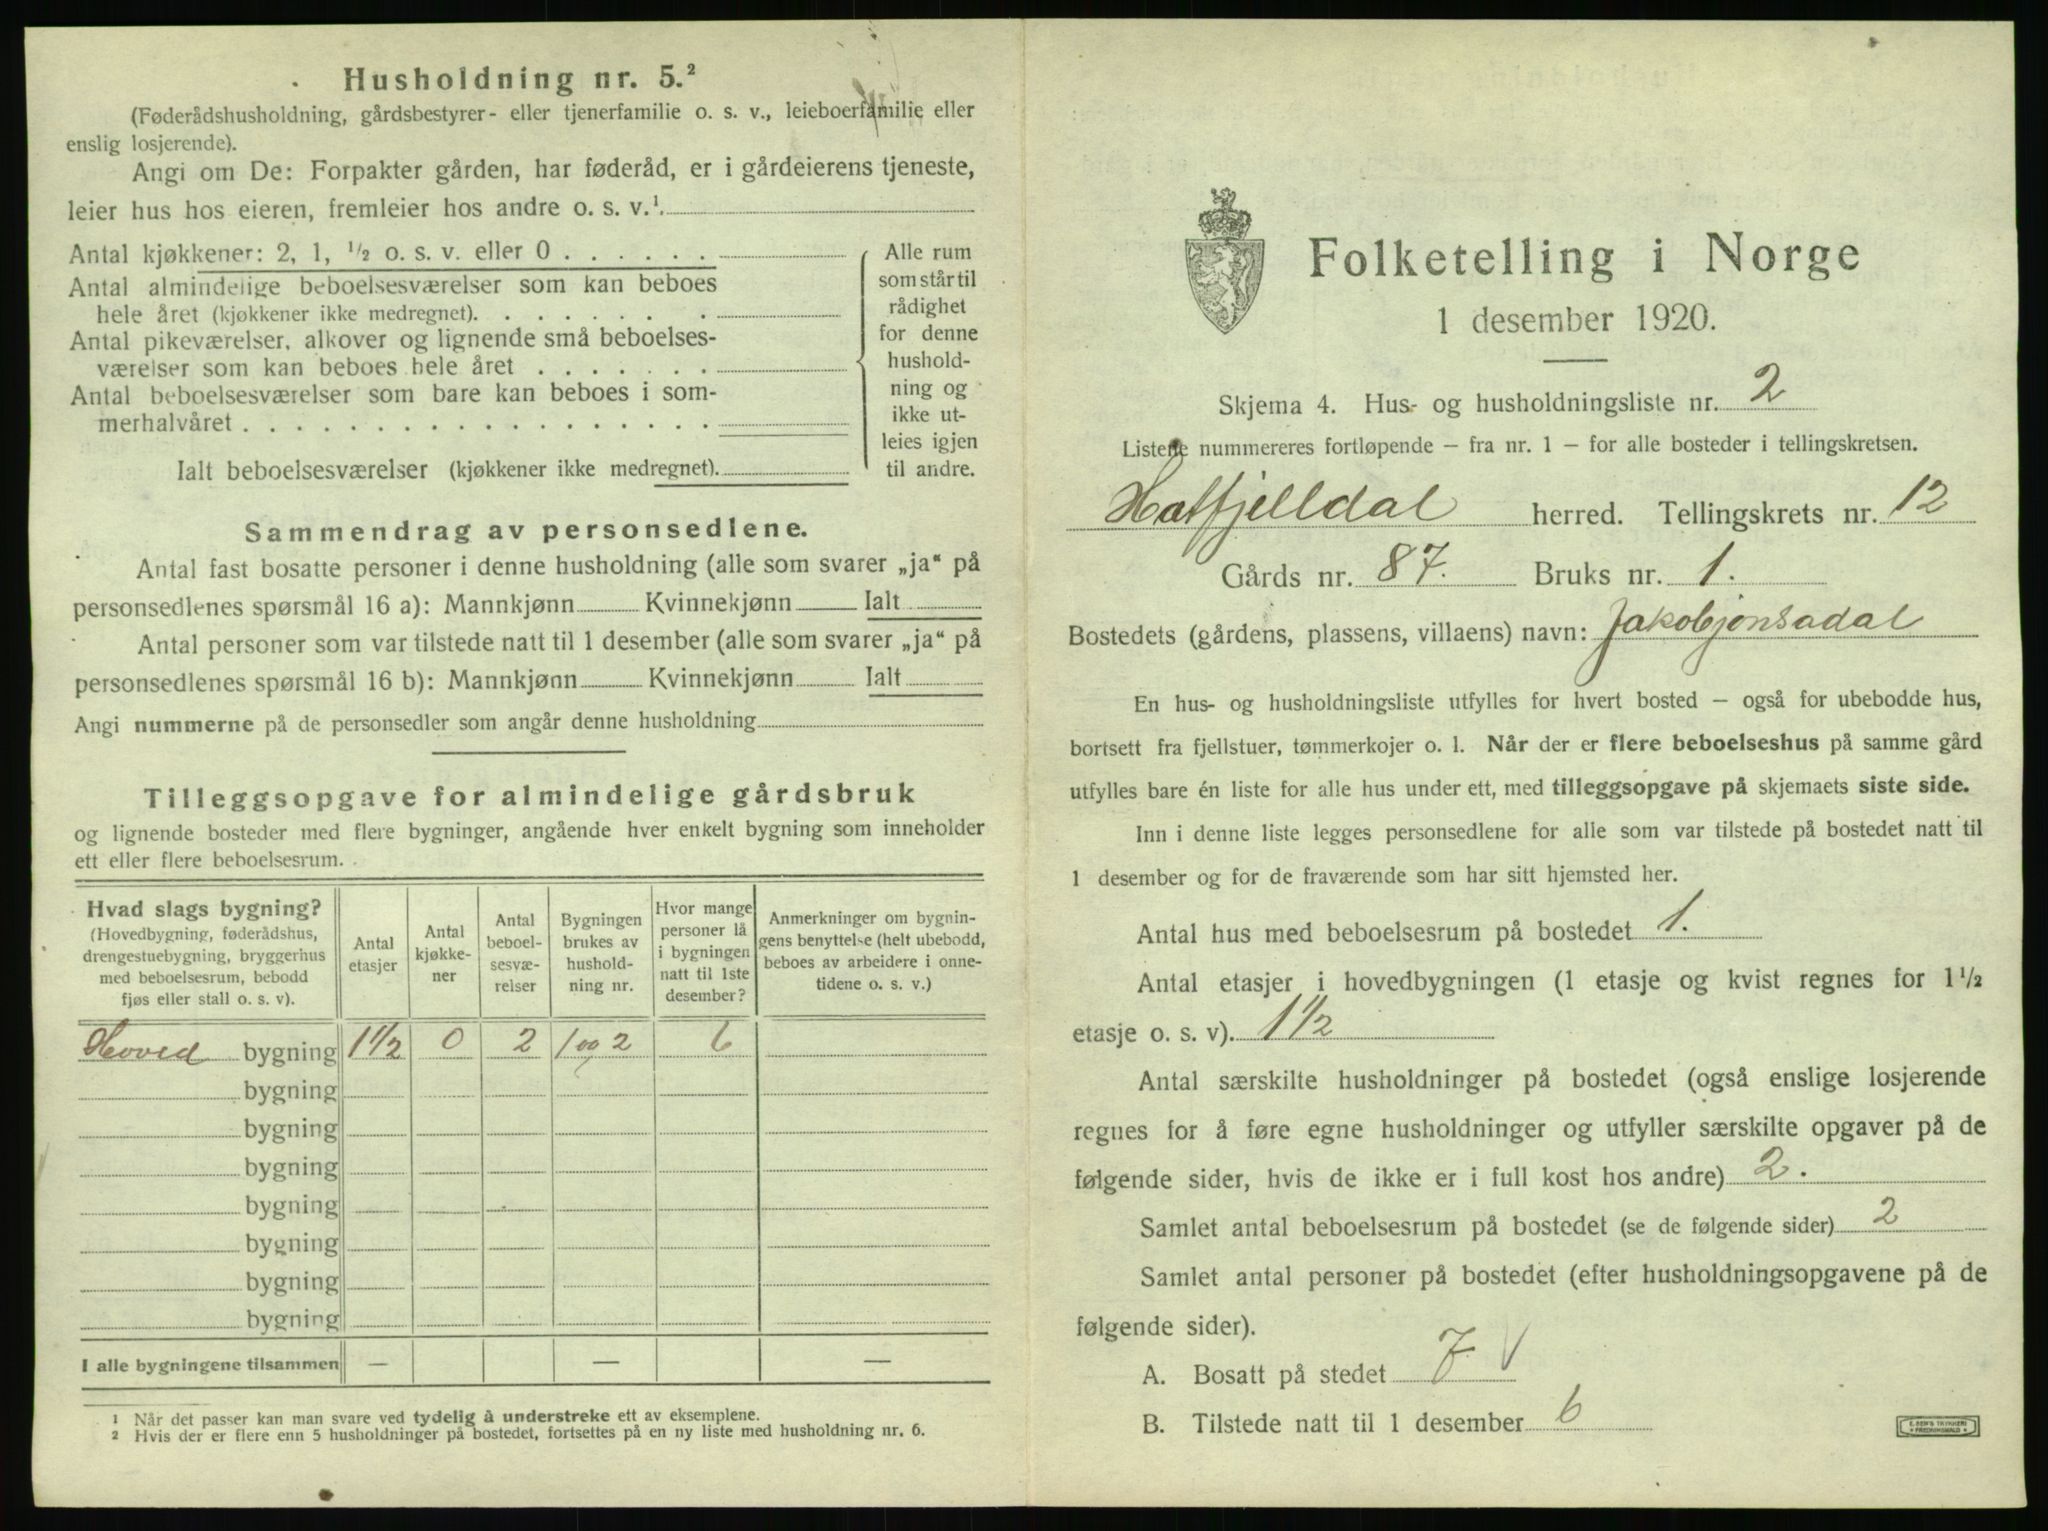 Husholdning nr. 5.²
(Føderådshusholdning, gårdsbestyrer- eller tjenerfamilie o. s. v., leieboerfamilie eller
enslig losjerende).
Angi om De: Forpakter gården, har føderåd, er i gårdeierens tjeneste,
leier hus hos eieren, fremleier hos andre o. s. v.¹
Antal kjøkkener: 2, 1, ½ o. s. v. eller 0 . . . . . .
Antal almindelige beboelsesværelser som kan beboes
hele året (kjøkkener ikke medregnet). . . . . . . .
Antal pikeværelser, alkover og lignende små beboelses-
værelser som kan beboes hele året . . . . . . .
Antal beboelsesværelser som bare kan beboes i som-
merhalvåret . . . . . . . . . . . . . . . . . .
Ialt beboelsesværelser (kjøkkener ikke medregnet).
Alle rum
som står til
rådighet
for denne
hushold-
ning og
ikke ut-
leies igjen
til andre.
Sammendrag av personsedlene.
Antal fast bosatte personer i denne husholdning (alle som svarer „ja“ på
personsedlenes spørsmål 16 a): Mannkjønn Kvinnekjønn Ialt
Antal personer som var tilstede natt til 1 desember (alle som svarer „ja“ på
personsedlenes spørsmål 16 b): Mannkjønn Kvinnekjønn Ialt
Angi nummerne på de personsedler som angår denne husholdning
Tilleggsopgave for almindelige gårdsbruk
og lignende bosteder med flere bygninger, angående hver enkelt bygning som inneholder
ett eller flere beboelsesrum.
Hvad slags bygning?
(Hovedbygning, føderådshus,
drengestuebygning, bryggerhus
med beboelsesrum, bebodd
fjøs eller stall o. s. v).
Antal
etasjer
Antal
kjøkke-
ner
Antal
beboel-
sesvæ-
relser
Bygningen
brukes av
hushold-
ning nr.
Hvor mange
personer lå
i bygningen
natt til 1ste
desember?
Anmerkninger om bygnin-
gens benyttelse (helt ubebodd,
beboes av arbeidere i onne-
tidene o. s. v.)
Hoved bygning 1½ 0 2 1 og 2 6
bygning
bygning
bygning
bygning
bygning
bygning
bygning
I alle bygningene tilsammen — — —
¹ Når det passer kan man svare ved tydelig å understreke ett av eksemplene.
² Hvis der er flere enn 5 husholdninger på bostedet, fortsettes på en ny liste med husholdning nr. 6.
Folketelling i Norge
1 desember 1920.
Skjema 4. Hus- og husholdningsliste nr. 2
Listene nummereres fortløpende – fra nr. 1 – for alle bosteder i tellingskretsen.
Hatfjelldal herred. Tellingskrets nr. 12
Gårds nr. 87. Bruks nr. 1.
Bostedets (gårdens, plassens, villaens) navn: Jakobjonsadal
En hus- og husholdningsliste utfylles for hvert bosted – også for ubebodde hus,
bortsett fra fjellstuer, tømmerkojer o. l. Når der er flere beboelseshus på samme gård
utfylles bare én liste for alle hus under ett, med tilleggsopgave på skjemaets siste side.
Inn i denne liste legges personsedlene for alle som var tilstede på bostedet natt til
1 desember og for de fraværende som har sitt hjemsted her.
Antal hus med beboelsesrum på bostedet 1.
Antal etasjer i hovedbygningen (1 etasje og kvist regnes for 1½
etasje o. s. v). 1½
Antal særskilte husholdninger på bostedet (også enslige losjerende
regnes for å føre egne husholdninger og utfyller særskilte opgaver på de
følgende sider, hvis de ikke er i full kost hos andre) 2.
Samlet antal beboelsesrum på bostedet (se de følgende sider) 2
Samlet antal personer på bostedet (efter husholdningsopgavene på de
følgende sider).
A. Bosatt på stedet 7
B. Tilstede natt til 1 desember 6